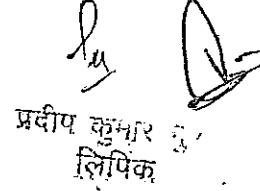 प्रदीप कुमार
लिपिक